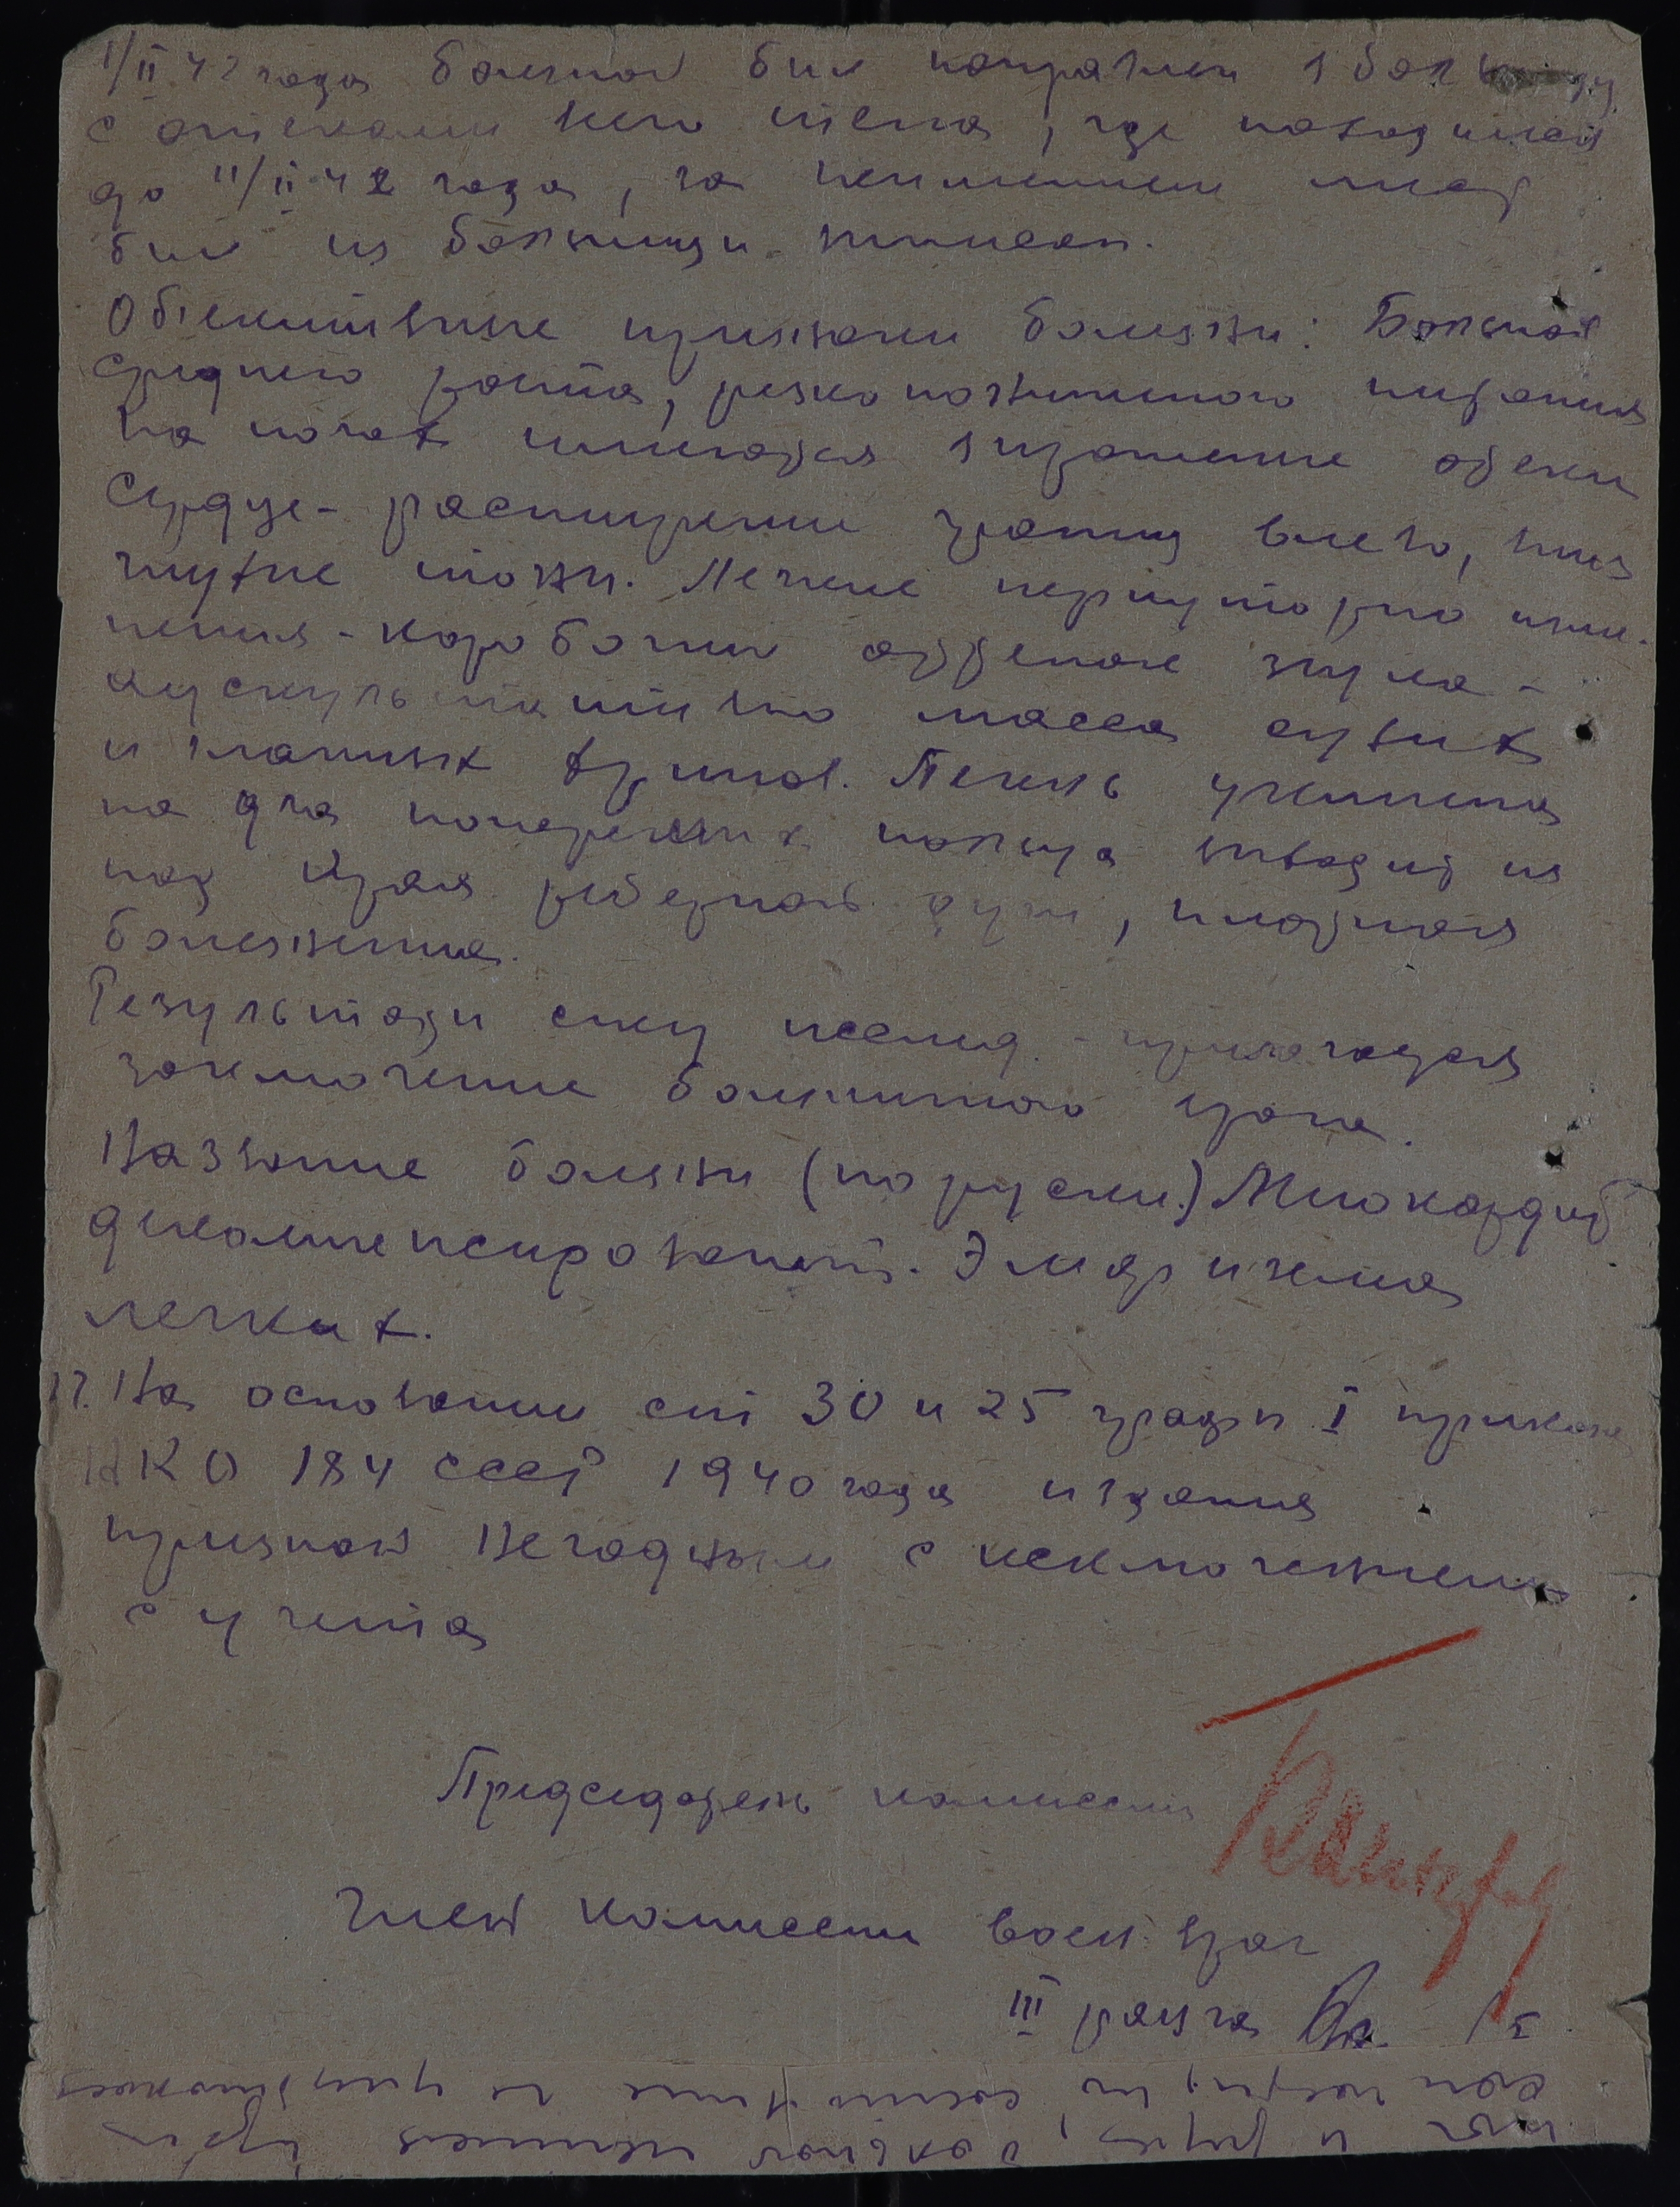 1/II 42 года больной был направлен в больницу
с отеками всего тела, где находился
до 11/II 42 года, за неимением мест
был из больницы выписан.
Об'ективные признаки болезни: Больной
среднего роста, резко пониженного питания
на ногах имеются выраженные отеки
Сердце - расширение границ влево,
глухие тоны. Легкие перкуторно изме-
нения - коробочный оттенок звука -
аускультативно масса сухих
и влажных хрипов. Печень увеличена
на два поперечных пальца выходит из
под края реберной дуги, плотная
болезненна.
Результаты спец исслед. - прилагается
заключение больничного врача.
Название болезни (по русски.) Миокардит
декомпенсирован. Эмфизема
легких.
17. На основании ст 30 и 25 графы I приказа
НКО 184 СССР 1940 года издания
признан негодным с исключением
с учета
Председатель комиссии
Член комиссии воен. врач
III ранга